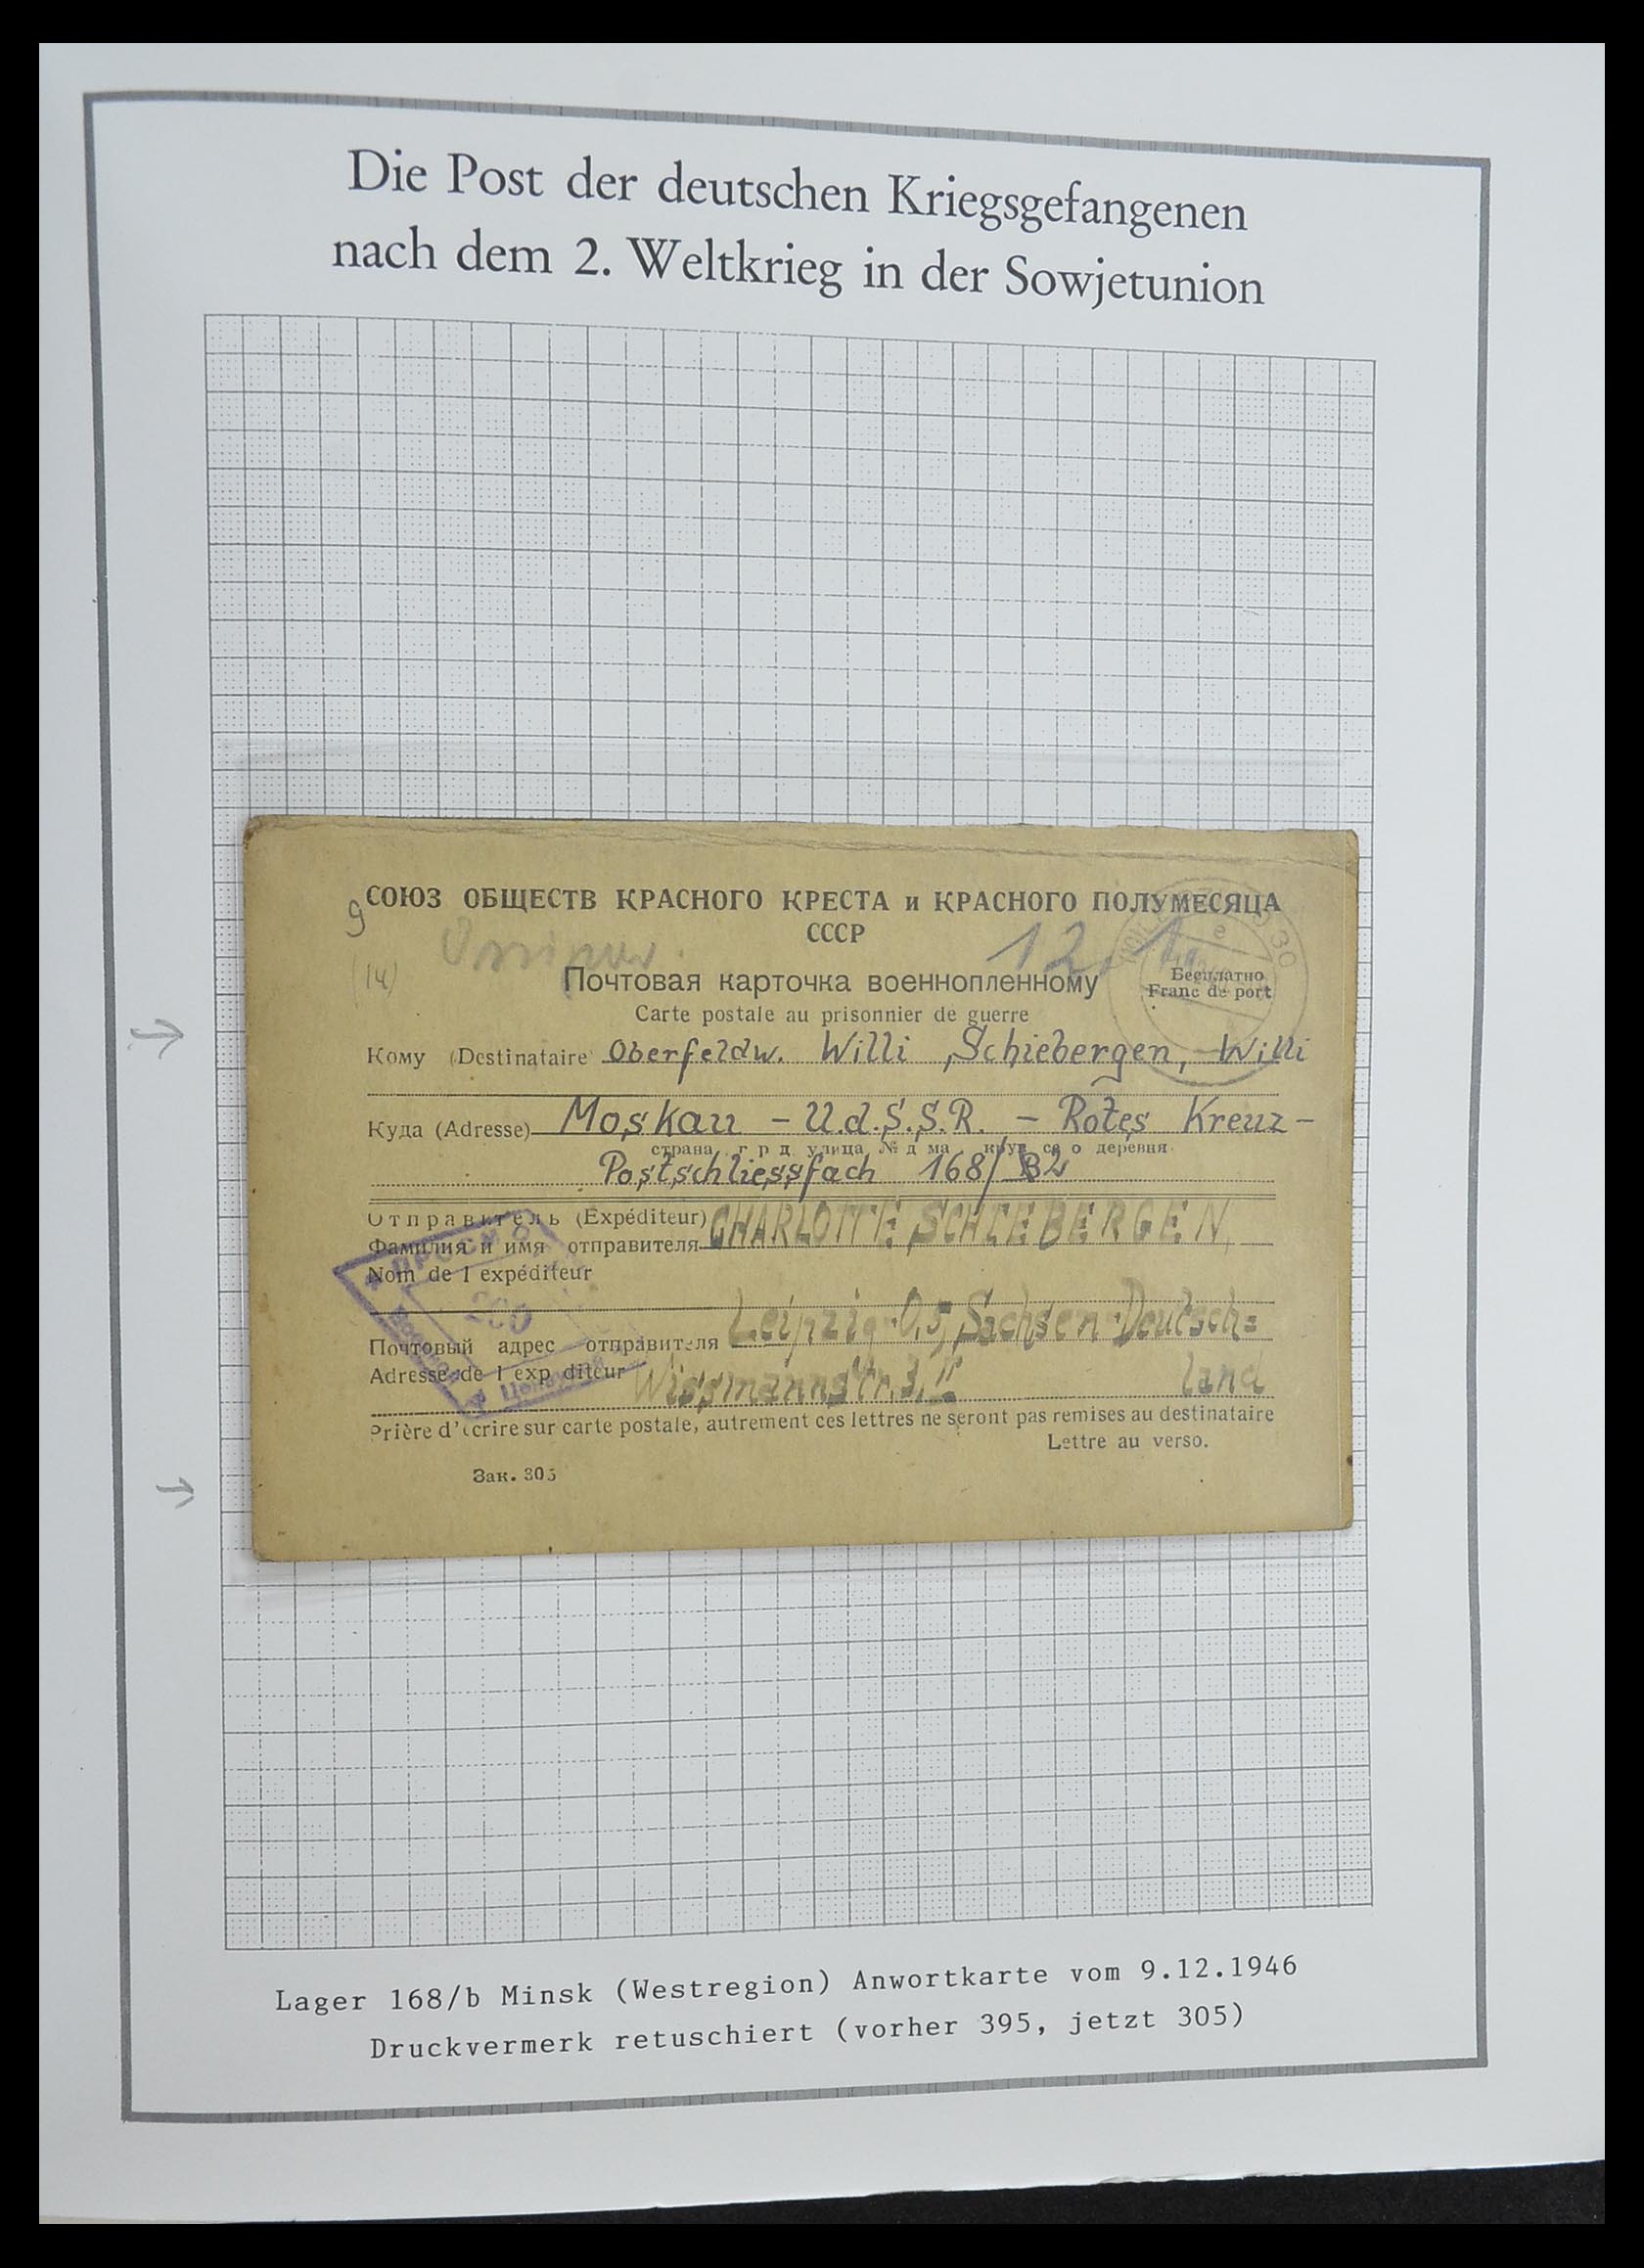 Die Post der deutschen Kriegsgefangenen
nach dem 2. Weltkrieg in der Sowjetunion
9
СОЮЗ ОБЩЕСТВ КРАСНОГО КРЕСТА и КРАСНОГО ПОЛУМЕСЯЦА
СССР
12. 1.
(14)
Почтовая карточка военнопленному
Бесплатно
Franc de port
Carte postale au prisonnier de guerre
Кому (Destinataire Oberfeldw. Willi Schiebergen, Willi
Куда (Adresse) Moskau – U.d.S.S.R. – Rotes Kreuz –
страна г р д улица № д ма деревня
Postschliessfach 168/
Отправитель (Expéditeur) CHARLOTTE SCHIEBERGEN,
Фамилия и имя отправителя
Nom de l expéditeur
Почтовый адрес отправителя Leipzig-O.5, Sachsen-Deutsch=
Adresse de l exp diteur Wissmannstr. 3. II land
Prière d' crire sur carte postale, autrement ces lettres ne seront pas remises au destinataire
Lettre au verso.
Зак. 305
Lager 168/b Minsk (Westregion) Anwortkarte vom 9.12.1946
Druckvermerk retuschiert (vorher 395, jetzt 305)